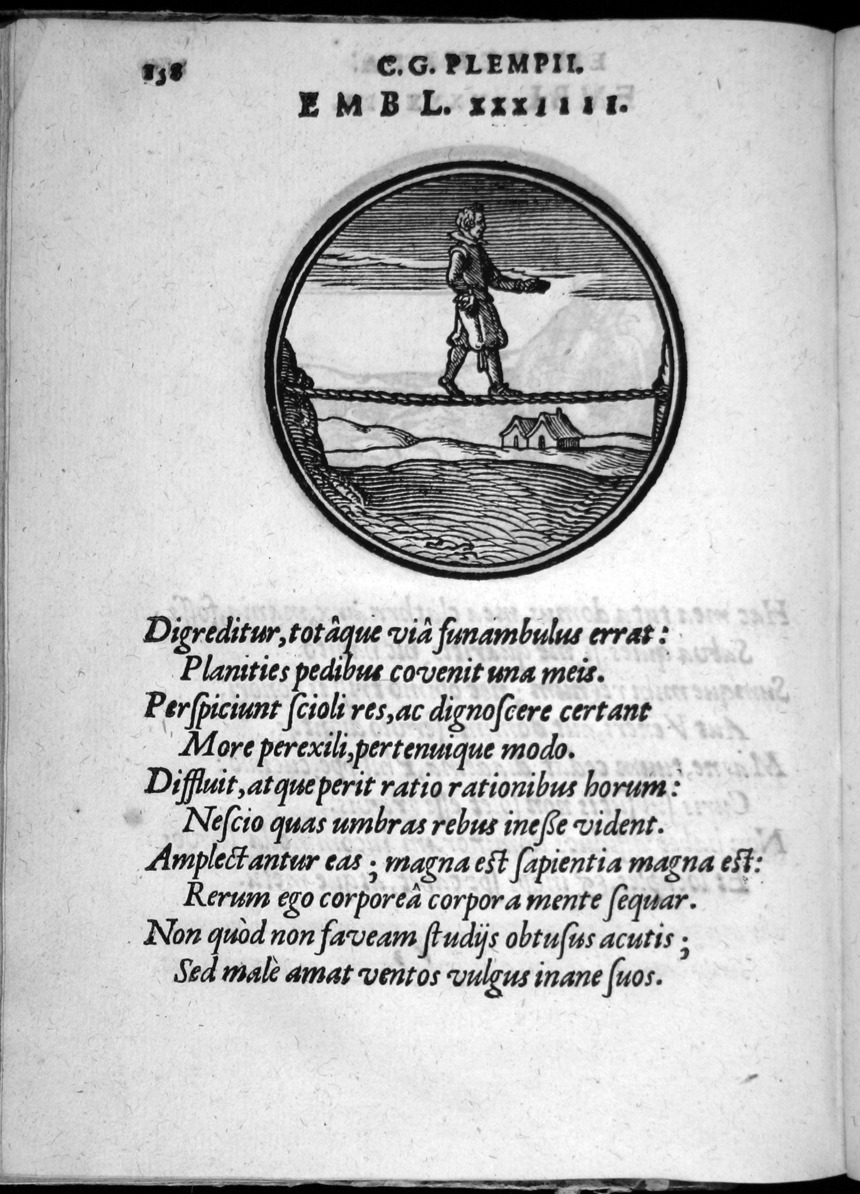 138
C. G. PLEMPII.
EMBL. XXXIIII.
Digreditur, totâque viâ funambulus errat:
Planities pedibus covenit una meis.
Perſpiciunt ſcioli res, ac dignoſcere certant
More perexili, pertenuique modo.
Diffluit, atque perit ratio rationibus horum:
Neſcio quas umbras rebus ineße vident.
Amplectantur eas; magna eſt ſapientia magna eſt:
Rerum ego corporeâ corpora mente ſequar.
Non quòd non faveam ſtudijs obtuſus acutis;
Sed malè amat ventos vulgus inane ſuos.